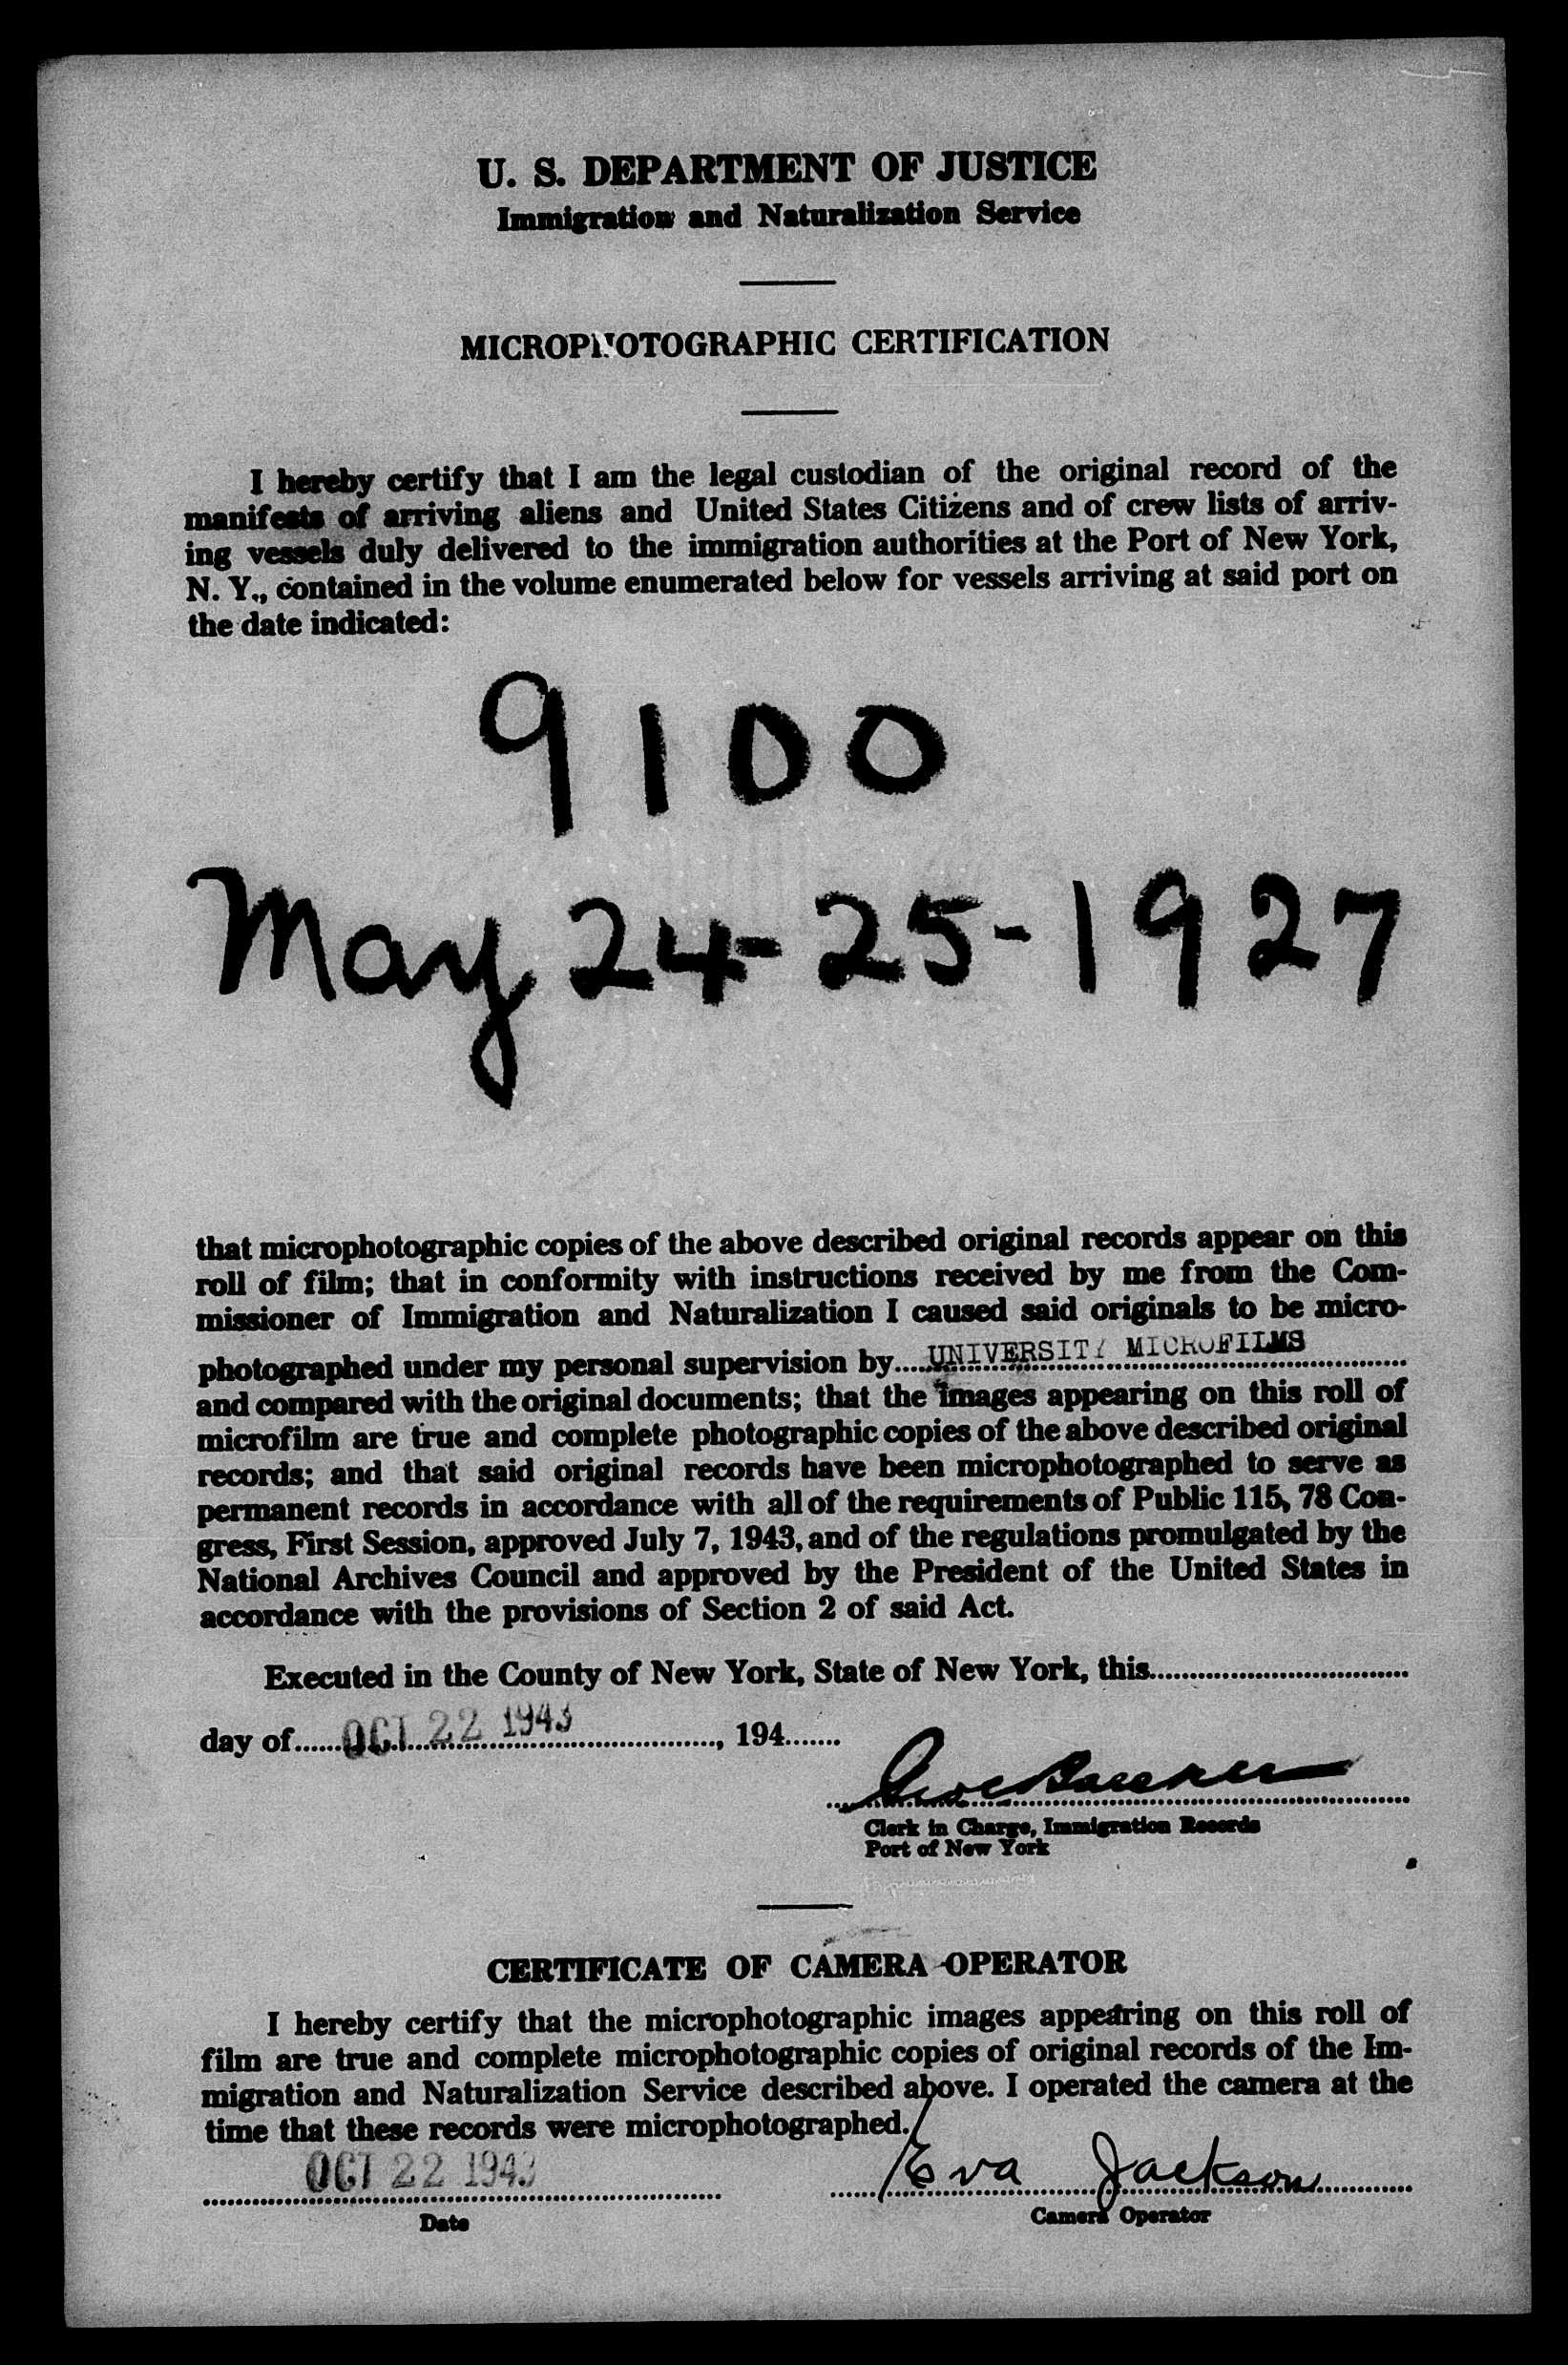 U. S. DEPARTMENT OF JUSTICE
Immigration and Naturalization Service
MICROPHOTOGRAPHIC CERTIFICATION
I hereby certify that I am the legal custodian of the original record of the
manifests of arriving aliens and United States Citizens and of crew lists of arriv-
ing vessels duly delivered to the immigration authorities at the Port of New York,
N. Y., contained in the volume enumerated below for vessels arriving at said port on
the date indicated:
9100
May 24-25-1927
that microphotographic copies of the above described original records appear on this
roll of film; that in conformity with instructions received by me from the Com-
missioner of Immigration and Naturalization I caused said originals to be micro-
photographed under my personal supervision by UNIVERSITY MICROFILMS
and compared with the original documents; that the images appearing on this roll of
microfilm are true and complete photographic copies of the above described original
records; and that said original records have been microphotographed to serve as
permanent records in accordance with all of the requirements of Public 115, 78 Con-
gress, First Session, approved July 7, 1943, and of the regulations promulgated by the
National Archives Council and approved by the President of the United States in
accordance with the provisions of Section 2 of said Act.
Executed in the County of New York, State of New York, this
day of OCT 22 1943, 194
Clerk in Charge, Immigration Records
Port of New York
CERTIFICATE OF CAMERA OPERATOR
I hereby certify that the microphotographic images appearing on this roll of
film are true and complete microphotographic copies of original records of the Im-
migration and Naturalization Service described above. I operated the camera at the
time that these records were microphotographed.
OCT 22 1943 Eva Jackson
Date Camera Operator